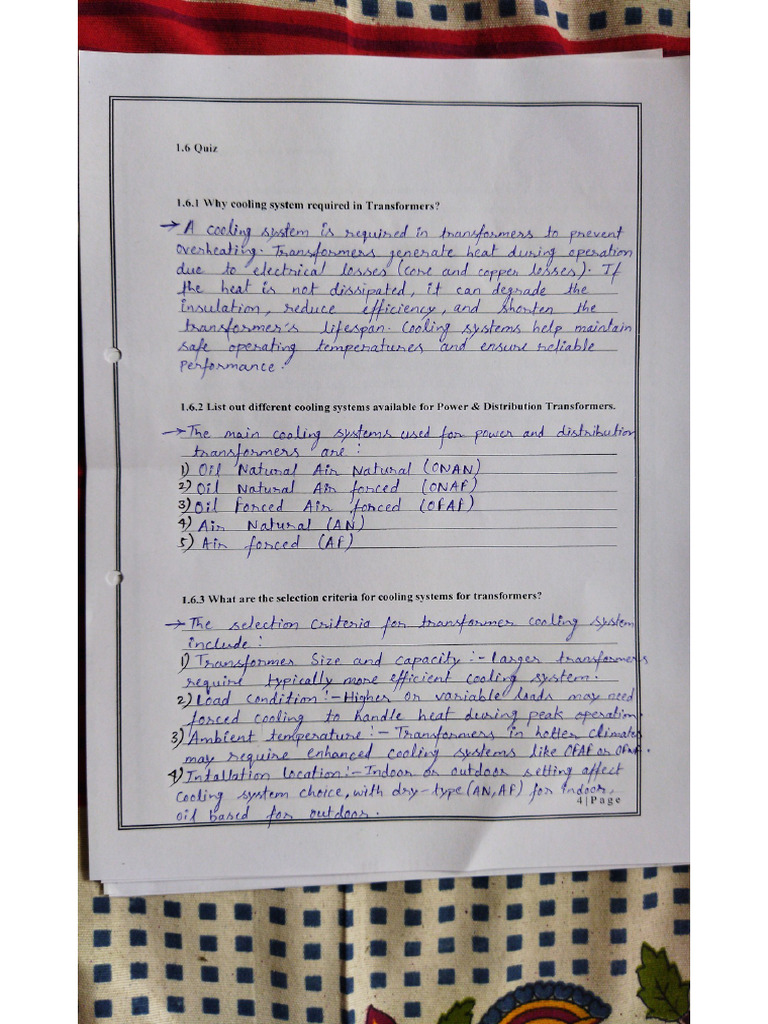 1.6 Quiz
1.6.1 Why cooling system required in Transformers?
→ A cooling system is required in transformers to prevent
overheating. Transformers generate heat during operation
due to electrical losses (core and copper losses). If
the heat is not dissipated, it can degrade the
insulation, reduce efficiency, and shorten the
transformer's lifespan. Cooling systems help maintain
safe operating temperatures and ensure reliable
performance.
1.6.2 List out different cooling systems available for Power & Distribution Transformers.
→ The main cooling systems used for power and distribution
transformers are :
1) Oil Natural Air Natural (ONAN)
2) Oil Natural Air forced (ONAF)
3) Oil Forced Air forced (OFAF)
4) Air Natural (AN)
5) Air forced (AF)
1.6.3 What are the selection criteria for cooling systems for transformers?
→ The selection criteria for transformer cooling system
include :
1) Transformer Size and capacity :- Larger transformers
require typically more efficient cooling system.
2) Load condition :- Higher or variable loads may need
forced cooling to handle heat during peak operation.
3) Ambient temperature :- Transformers in hotter climates
may require enhanced cooling systems like OFAF or
4) Intallation location :- Indoor or outdoor setting affect
cooling system choice, with dry-type (AN, AF) for indoor,
4 | Page
oil based for outdoor.